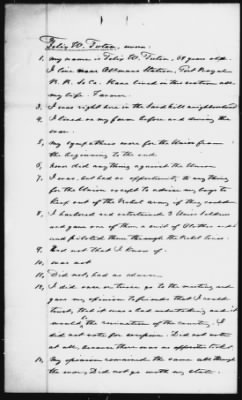 Felix W. Tuten, sworn:
1, my name is Felix W. Tuten, 68 years old.
I live near Altmans Station, Port Royal
R. R. So Ca. Have lived in this section all
my life. Farmer.
3, I was right here in the Sand hill neighborhood
4, I lived on my farm before and during the
war.
5, my sympathies were for the Union from
the beginning to the end.
6, never did anything against the Union
7, I was, but had no opportunity, to anything
for the Union except to advise my boys to
keep out of the Rebel army if they could
8, I harbored and entertained 3 Union soldiers
and gave one of them a suit of clothes and
and piloted them through the Rebel lines.
9, Did not that I know of.
10, was not
11, Did not, had no
12, I did once or twice go to the meeting and
gave my opinion to friends that I could
trust, that it was a bad undertaking and it
would be the ruination of the country, I
did not vote for anyone. Did not vote
at all, because there was no opposite ticket
13, My opinion remained the same all through
the war, Did not go with my state.